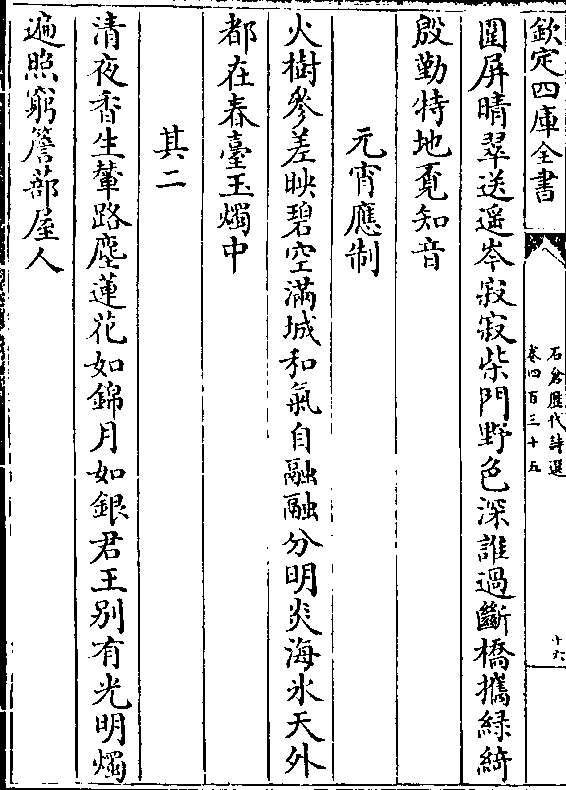 欽定四庫全書
石倉歷代詩選
卷四百三十五
十六
圍屏晴翠送遥岑寂寂柴門野色深誰過斷橋攜緑綺
殷勤特地覓知音
元宵應制
火樹參差映碧空滿城和氣自融融分明炎海氷天外
都在春臺玉燭中
其二
清夜香生輦路塵蓮花如錦月如銀君王别有光明燭
遍照窮簷蔀屋人